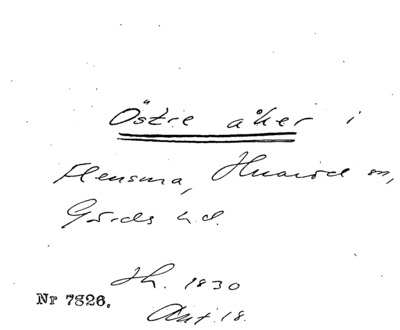 Östre åker i
Flensma, Hvarrd sn,
Gärds h.d.
Th. 1830
Nr 7826.
Ant. 18.